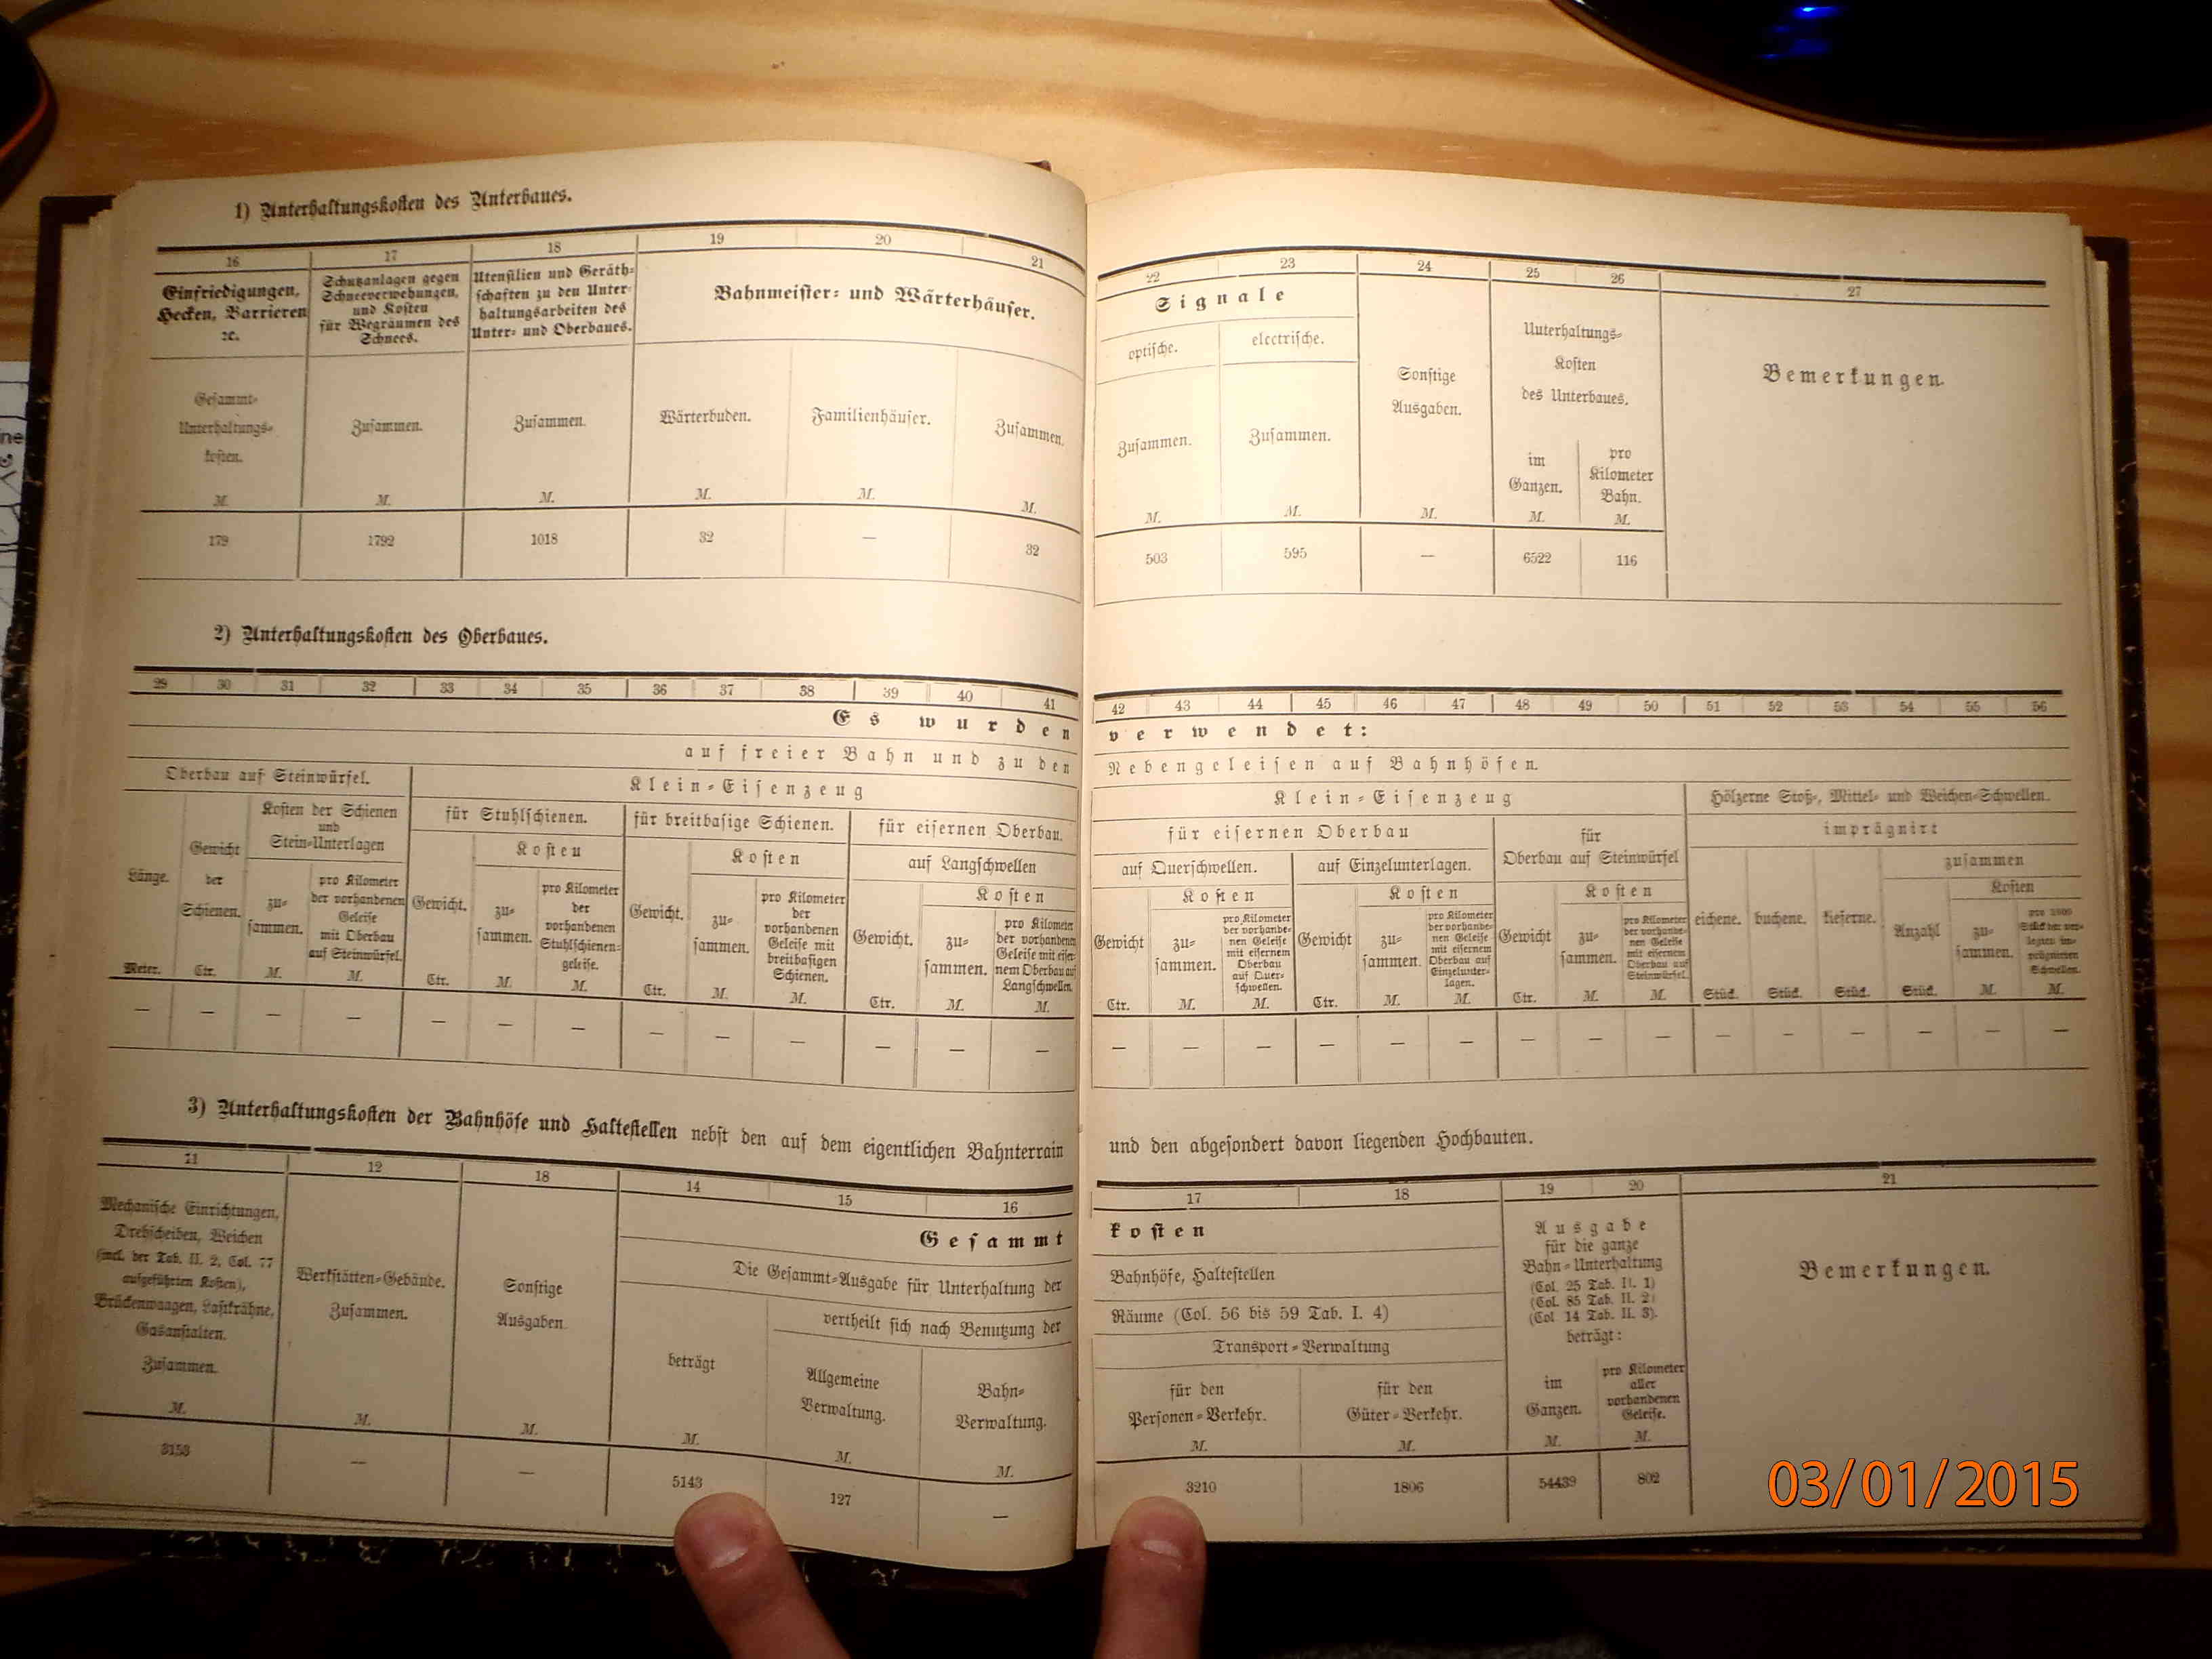 1) Unterhaltungskosten des Unterbaues.
16 17 18 19 20 21
Einfriedigungen, Hecken, Barrieren ꝛc.
Gesammt-Unterhaltungs-kosten.
M.
Schutzanlagen gegen Schneeverwehungen, und Kosten für Wegräumen des Schnees.
Zusammen.
M.
Utensilien und Geräth-schaften zu den Unter-haltungsarbeiten des Unter- und Oberbaues.
Zusammen.
M.
Bahnmeister- und Wärterhäuser.
Wärterbuden. Familienhäuser. Zusammen.
M. M. M.
179 1792 1018 32 — 32
22 23 24 25 26 27
Signale
optische. electrische.
Zusammen. Zusammen.
M. M.
Sonstige
Ausgaben.
M.
Unterhaltungs-
Kosten
des Unterbaues.
im Ganzen. pro Kilometer Bahn.
M. M.
Bemerkungen.
503 595 — 6522 116
2) Unterhaltungskosten des Oberbaues.
29 30 31 32 33 34 35 36 37 38 39 40 41
Es wurden
auf freier Bahn und zu den
Oberbau auf Steinwürfel.
Klein-Eisenzeug
Länge.
Meter.
Gewicht der Schienen.
Ctr.
Kosten der Schienen
und
Stein-Unterlagen
zu-sammen.
M.
pro Kilometer der vorhandenen Geleise mit Oberbau auf Steinwürfel.
M.
für Stuhlschienen.
Gewicht.
Ctr.
Kosten
zu-sammen.
M.
pro Kilometer der vorhandenen Stuhlschienen-geleise.
M.
für breitbasige Schienen.
Gewicht.
Ctr.
Kosten
zu-sammen.
M.
pro Kilometer der vorhandenen Geleise mit breitbasigen Schienen.
M.
für eisernen Oberbau.
auf Langschwellen
Gewicht.
Ctr.
Kosten
zu-sammen.
M.
pro Kilometer der vorhandenen Geleise mit eiser-nem Oberbau auf Langschwellen.
M.
— — — — — — — — — — — — —
42 43 44 45 46 47 48 49 50 51 52 53 54 55 56
verwendet:
Nebengeleisen auf Bahnhöfen.
Klein-Eisenzeug
für eisernen Oberbau
auf Querschwellen.
Gewicht
Ctr.
Kosten
zu-sammen.
M.
pro Kilometer der vorhande-nen Geleise mit eisernem Oberbau auf Quer-schwellen.
M.
auf Einzelunterlagen.
Gewicht
Ctr.
Kosten
zu-sammen.
M.
pro Kilometer der vorhande-nen Geleise mit eisernem Oberbau auf Einzelunter-lagen.
M.
für
Oberbau auf Steinwürfel
Gewicht
Ctr.
Kosten
zu-sammen.
M.
pro Kilometer der vorhande-nen Geleise mit eisernem Oberbau auf Steinwürfel.
M.
Hölzerne Stoß-, Mittel- und Weichen-Schwellen.
imprägnirt
eichene. buchene. kieferne.
Stück. Stück. Stück.
zusammen
Anzahl
Stück.
Kosten
zu-sammen.
M.
pro 1000 Stück der ver-legten im-prägnirten Schwellen.
M.
— — — — — — — — — — — — — — —
3) Unterhaltungskosten der Bahnhöfe und Haltestellen nebst den auf dem eigentlichen Bahnterrain und den abgesondert davon liegenden Hochbauten.
11 12 13 14 15 16
Mechanische Einrichtungen,
Drehscheiben, Weichen
(incl. der Tab. II. 2, Col. 77
aufgeführten Kosten),
Brückenwaagen, Lastkrähne,
Gasanstalten.
Zusammen.
M.
Werkstätten-Gebäude.
Zusammen.
M.
Sonstige
Ausgaben.
M.
Gesammt
Die Gesammt-Ausgabe für Unterhaltung der
beträgt
M.
vertheilt sich nach Benutzung der
Allgemeine Verwaltung.
M.
Bahn-Verwaltung.
M.
3153 — — 5143 127 —
17 18 19 20 21
kosten
Bahnhöfe, Haltestellen
Räume (Col. 56 bis 59 Tab. I. 4)
Transport-Verwaltung
für den Personen-Verkehr.
M.
für den Güter-Verkehr.
M.
Ausgabe
für die ganze
Bahn-Unterhaltung
(Col. 25 Tab. II. 1)
(Col. 85 Tab. II. 2)
(Col 14 Tab. II. 3).
beträgt:
im Ganzen.
M.
pro Kilometer aller vorhandenen Geleise.
M.
Bemerkungen.
3210 1806 54439 802
03/01/2015